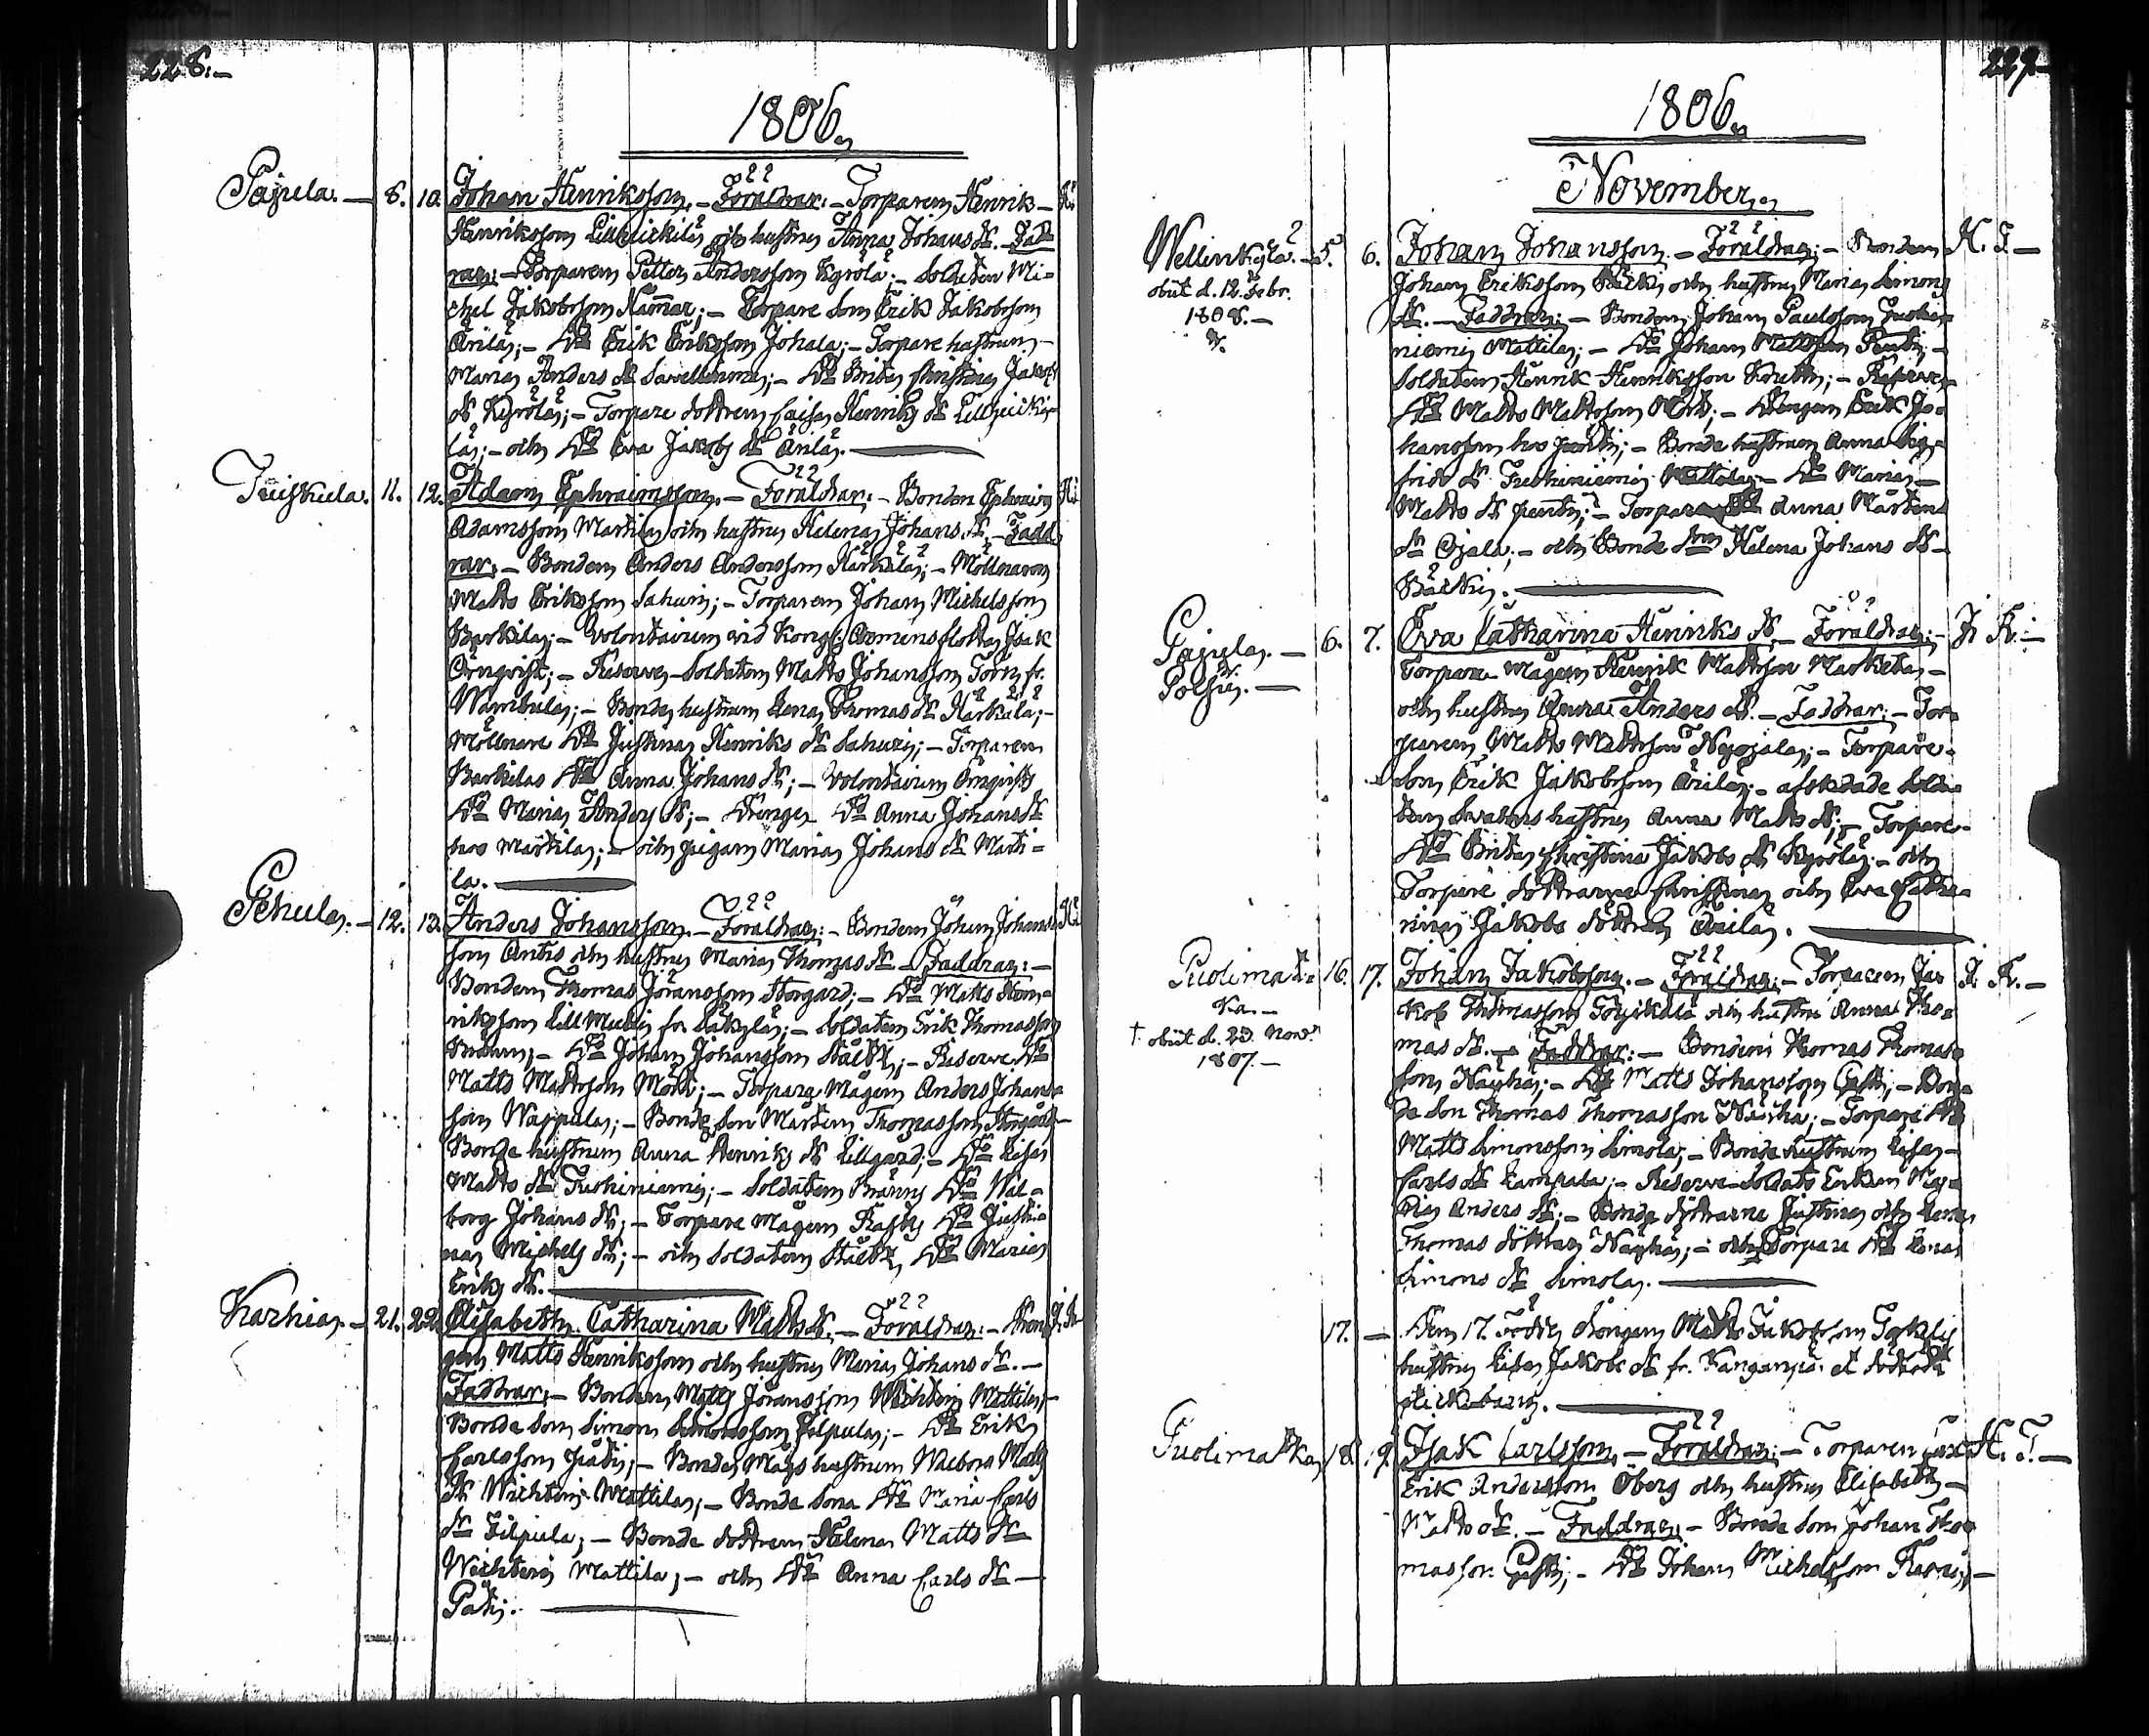 228.
1806.
Pajula. — 8. 10. Johan Henriksson. — Föräldrar: — Torparen Henrik
Henriksson och hustru Anna Johans dr. — Fadd
rar: — Torparen Petter Andersson Kyrölä; — Soldaten Mi-
chel Jakobsson Hammar; — Torpare Son Erik Jakobsson
Änilä; — Do Erik Eriksson Johala; — Torpare hustrun
Maria Anders dr; — Do Brita Christina Jakobs
dr Kyrölä; — Torpare dottren Caisa Henriks dr
lä; — och Do Eva Jakobs dr Änilä.
Tuiskula. 11. 12. Adam Ephraimsson. — Föräldrar: — Bonden Ephraim
Adamsson Martila och hustru Helena Johans dr. — Fadd
rar: — Bonden Anders Andersson Kärkälä; — Möllnaren
Matts Eriksson Sahuri; — Torparen Johan Michelsson
Barkila; — Volontairen vid Kongl: Armens flotta Isak
Örnqvist; — Reserve-Soldaten Matts Johansson Törn fr.
Wambula; — Bonde hustrun Lena Thomas dr Kärkälä; —
Möllnare Do Justina Henriks dr Sahuri; — Torparen
Barkilas Do Anna Johans dr; — Volontairen Örnqvists
Do Maria Anders dr; — Drenge Do Anna Johans dr
hos Martila; — och pigan Maria Johans dr Marti-
la.
Pehula. — 12. 13. Anders Johansson. — Föräldrar: — Bonden Johan Johans
son Antis och hustru Maria Thomas dr — Faddrar: —
Bonden Thomas Jöransson Storgård; — Do Matts Hen-
riksson fr. Säkylä; — Soldaten Erik Thomasson
Bränn; — Do Johan Johansson; — Reserve Do
Matts Mattsson Mört; — Torpare Mågen Anders Johans
son Wappula; — Bonde Son Mårten Thomasson Storgård
Bonde hustrun Anna Henriks dr Lillgård; — Do Lisa
Matts dr Tuohiniemi; — Soldaten Bränns Do Wal-
borg Johans dr; — Torpare Mågen Do Justi-
na Michels dr; — och Soldaten Do Maria
Eriks dr.
Karhia. — 21. 22. Elisabeth Catharina Matts dr. — Föräldrar: — Dren
gen Matts Henriksson och hustru Maria Johans dr. —
Faddrar: — Bonden Matts Jöransson Wichteri Mattila; —
Bonde Son Simon Simonsson Filpula; — Do Erik
Carlsson Pätis; — Bonde Mågs hustrun Walborg Matts
dr Wichteri Mattila; — Bonde Sona Do Maria Carls
dr Filpula; — Bonde dottren Helena Matts dr
Wichteri Mattila; — och Do Anna Carls dr —
Pätis.
229.
1806.
November.
Wellinkylä. 5. 6. Johan Johansson. — Föräldrar: — Bonden H. T. —
obiit d. 12. Febr.
1808. —
Johan Eriksson Bäckis och hustru Maria Simons
dr. — Faddrar: — Bonden Johan Paulsson Tuohi-
niemi Mattila; — Do Johan Mattsson Pentti; —
Soldaten Henrik Henriksson; — Reserve
Do Matts Mattsson Mört; — Drengen Erik Jo-
hansson hos Pentti; — Bonde hustrun Anna Sig-
frids dr Tuohiniemi Mattila; — Do Maria
Matts dr Pentti; — Torpare Do Anna Mårtens
dr Ojala; — och Bonde Do Helena Johans dr
Bäckis.
Pajula. — 6. 7. Eva Catharina Henriks dr. — Föräldrar: — J. K. —
Torpare Mågen Henrik Mattsson
och hustru Anna Anders dr. — Faddrar: — Tor-
paren Matts Mattsson Nyojala; — Torpare
Son Erik Jakobsson Änilä; — afskedade Solda-
ten hustru Anna Matts dr; — Torpare
Do Brita Christina Jakobs dr Kyrölä; — och
Torpare döttrarne Christina och Eva Catha-
rina Jakobs döttrar Änilä.
Puolimat- 16. 17. Johan Jakobsson. — Föräldrar: — Torparen Ja- J. K. —
ka. —
† obiit d. 23. Novr
1807. —
kob Thomasson och hustru Anna Tho-
mas dr. — Faddrar: — Bonden Thomas Thomas-
son Näyhä; — Do Matts Johansson; — Bon-
de Son Thomas Thomasson Näyhä; — Torpare Do
Matts Simonsson Simola; — Bonde hustrun Lisa
Carls dr; — Reserve-Soldats Enkan Ma-
ria Anders dr; — Bonde döttrarne Justina och Lena
Thomas döttrar Näyhä; — och Torpare Do Lena
Simons dr Simola.
17. — Den 17. Födde drengen Matts Jakobsson
hustru Lisa Jakobs dr fr. Kanganpä et dödfödt
flickebarn.
Puolimatka 18. 19. Isak Carlsson. — Föräldrar: — Torparen Carl H. T. —
Erik Andersson Öberg och hustru Elisabeth —
Matts dr. — Faddrar: — Bonde Son Johan Tho-
masson; — Do Johan Michelsson